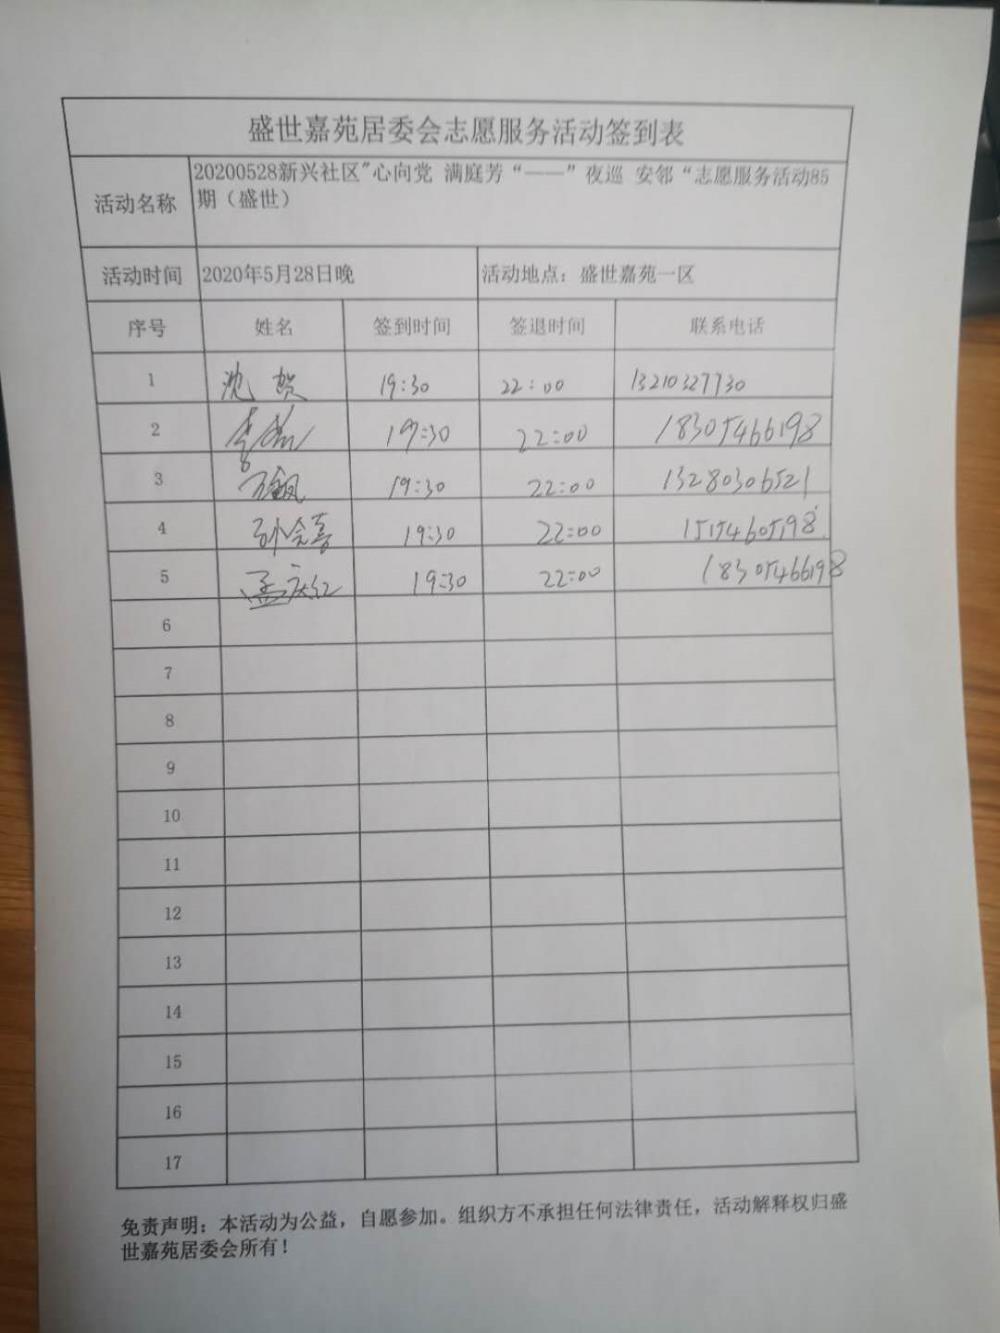 盛世嘉苑居委会志愿服务活动签到表
活动名称
20200528新兴社区"心向党 满庭芳“——”夜巡 安邻“志愿服务活动85
期（盛世）
活动时间 2020年5月28日晚 活动地点：盛世嘉苑一区
序号 姓名 签到时间 签退时间 联系电话
1 沈贺 19:30 22:00 13210327730
2 19:30 22:00 18305466198
3 19:30 22:00 13280306521
4 孙会喜 19:30 22:00 15154605198
5 孟庆红 19:30 22:00 18305466198
6
7
8
9
10
11
12
13
14
15
16
17
免责声明：本活动为公益，自愿参加。组织方不承担任何法律责任，活动解释权归盛
世嘉苑居委会所有！